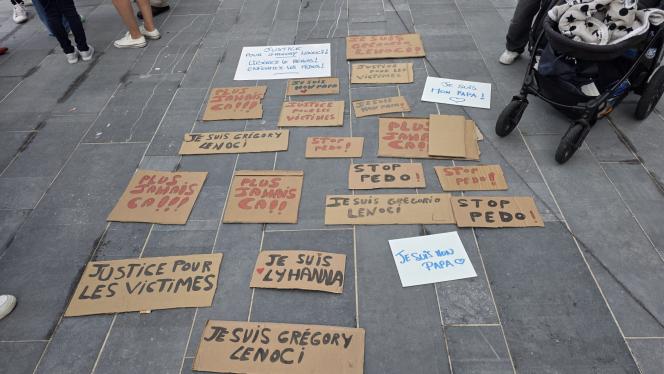 JUSTICE
POUR GRÉGORY LENOCI!
JE SUIS
GRÉGORIO LENOCI
JUSTICE
POUR LES VICTIMES
JE SUIS
MON PAPA!
JE SUIS
MON PAPA!
PLUS
JAMAIS
ÇA!!!
JUSTICE
POUR LES
VICTIMES
JE SUIS
MON PAPA!
JE SUIS GRÉGORY
LENOCI
STOP
PEDO!
PLUS
JAMAIS
ÇA!
PLUS
JAMAIS
ÇA!!!
PLUS
JAMAIS
ÇA!!!
STOP
PEDO!
STOP
PEDO!
JE SUIS GRÉGORIO
LENOCI
STOP
PEDO!
JUSTICE POUR
LES VICTIMES
JE SUIS
LYHANNA
JE SUIS MON
PAPA
JE SUIS GRÉGORY
LENOCI